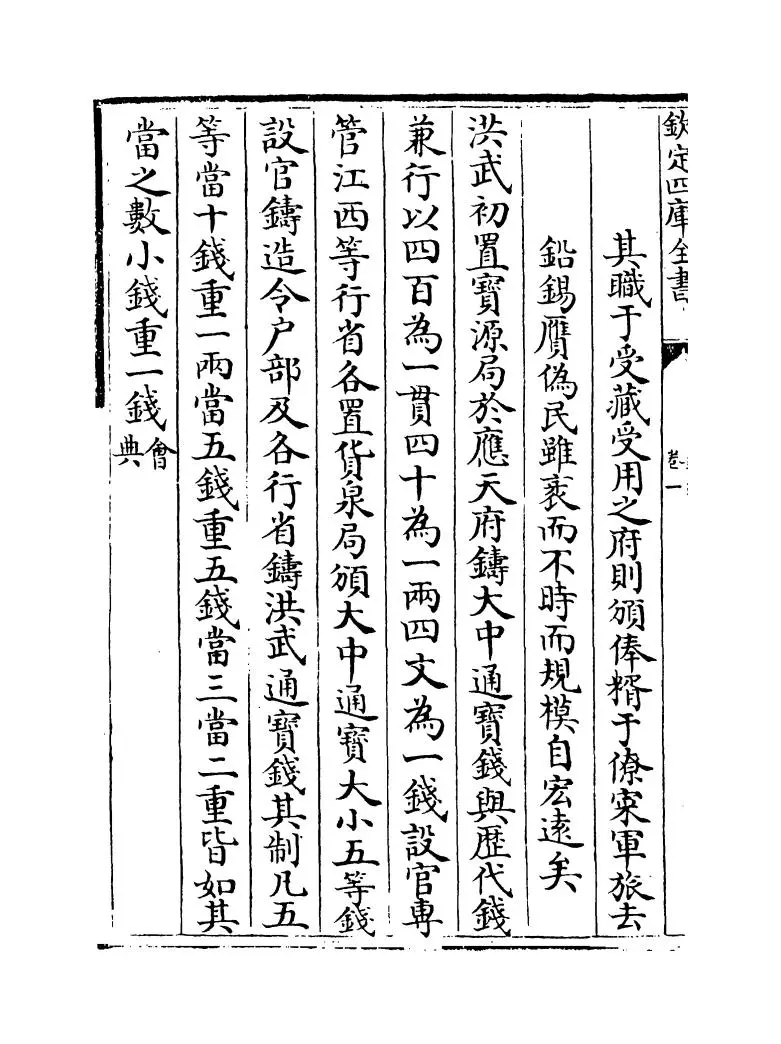 欽定四庫全書
卷一
其職于受藏受用之府則頒俸糈于僚寀軍旅去
鉛錫贋偽民雖衺而不時而規模自宏遠矣
洪武初置寳源局於應天府鑄大中通寳錢與歴代錢
兼行以四百為一貫四十為一兩四文為一錢設官專
管江西等行省各置貨泉局頒大中通寳大小五等錢
設官鑄造令户部及各行省鑄洪武通寳錢其制凡五
等當十錢重一兩當五錢重五錢當三當二重皆如其
當之數小錢重一錢會典